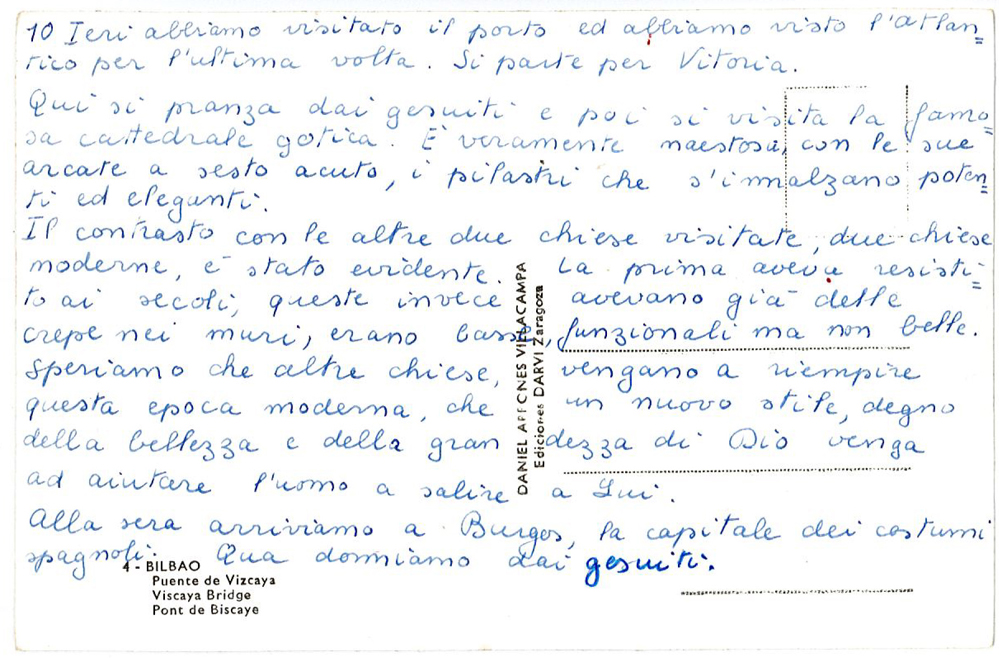 10 Ieri abbiamo visitato il porto ed abbiamo visto l'atlan=
tico per l'ultima volta. Si parte per Vitoria.
Qui si pranza dai gesuiti e poi si visita la famo=
sa cattedrale gotica. È veramente maestosa, con le sue
arcate a sesto acuto, i pilastri che s'innalzano poten=
ti ed eleganti.
Il contrasto con le altre due chiese visitate, due chiese
moderne, è stato evidente. La prima aveva resisti=
to ai secoli, queste invece avevano già delle
crepe nei muri, erano basse, funzionali ma non belle.
Speriamo che altre chiese, vengano a riempire
questa epoca moderna, che un nuovo stile, degno
della bellezza e della gran dezza di Dio venga
ad aiutare l'uomo a salire a Lui.
Alla sera arriviamo a Burgos, la capitale dei costumi
spagnoli. Qua dormiamo dai gesuiti.
4 - BILBAO
Puente de Vizcaya
Viscaya Bridge
Pont de Biscaye
DANIEL ARBONES VILLACAMPA
Ediciones DARVI Zaragoza